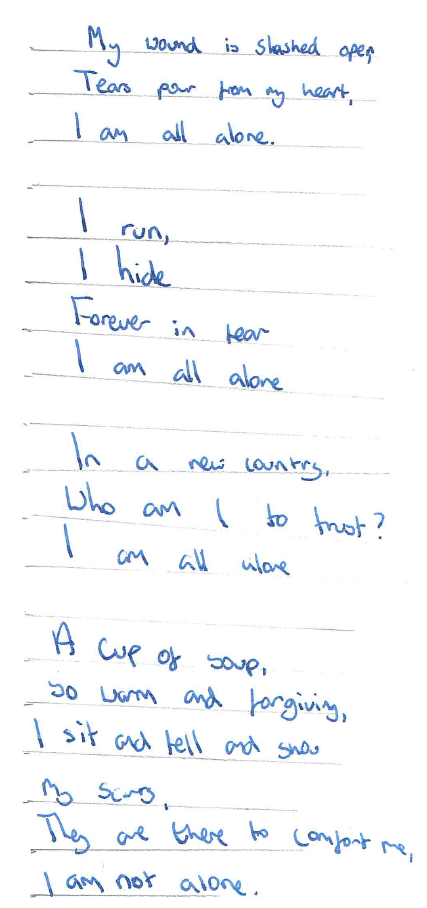 My wound is slashed open,
Tears pour from my heart,
I am all alone.
I run,
I hide
Forever in fear
I am all alone
In a new country,
Who am I to trust?
I am all alone
A cup of soup,
so warm and forgiving,
I sit and tell and show
My scars,
They are there to comfort me,
I am not alone.